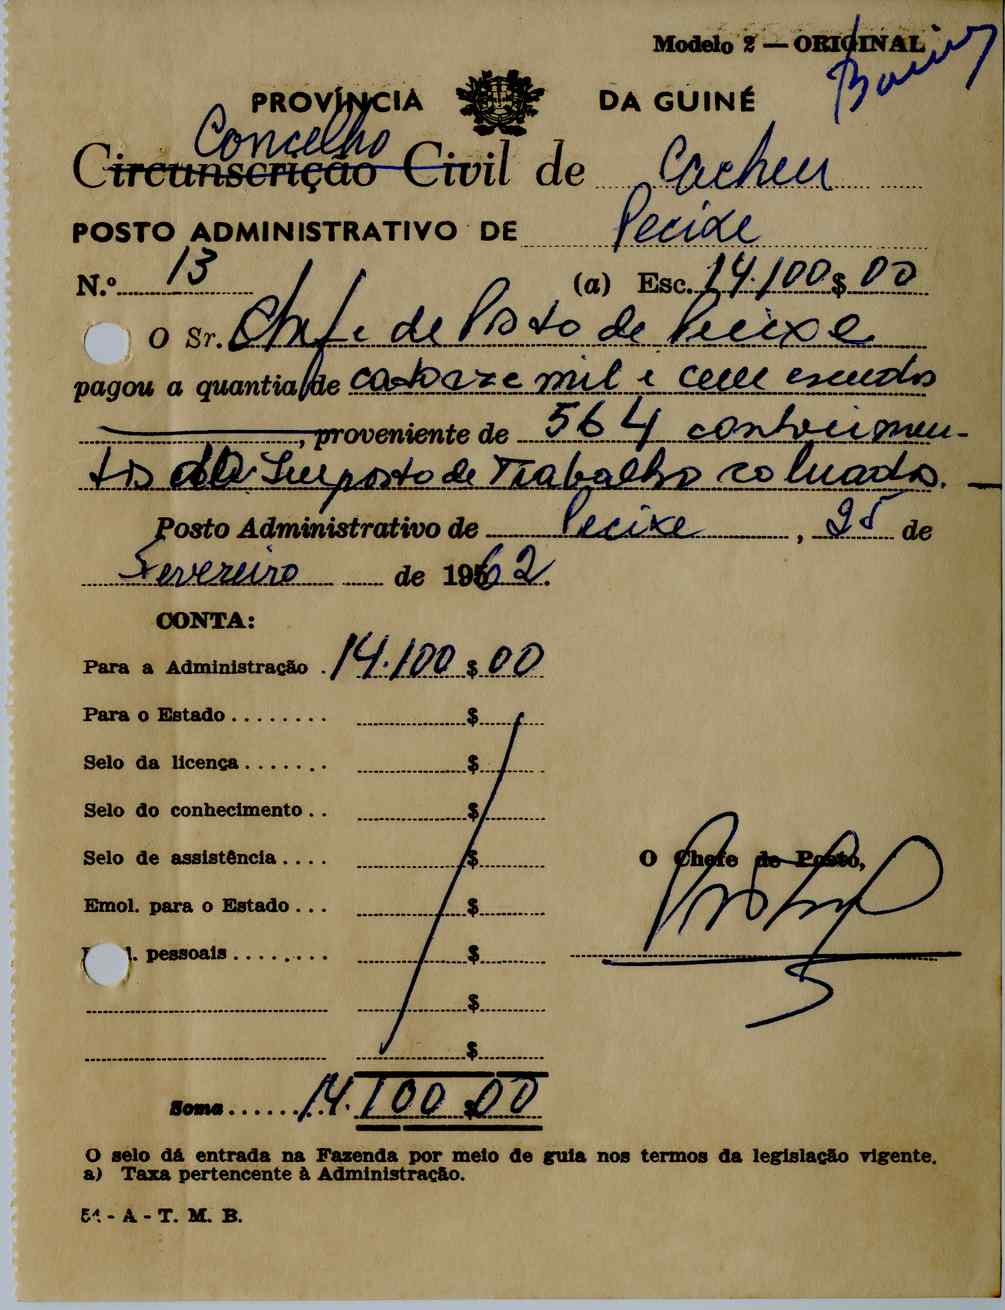 Modelo 2 — ORIGINAL
PROVÍNCIA DA GUINÉ
Concelho
Circunscrição Civil de Cacheu
POSTO ADMINISTRATIVO DE Pecixe
N.º 13 (a) Esc. 14.100$00
O Sr. Chefe de Posto de Pecixe
pagou a quantia de catorze mil e cem escudos
, proveniente de 564 conhecimen-
tos do Imposto de Trabalho cobrados.
Posto Administrativo de Pecixe, 25 de
Fevereiro de 1962.
CONTA:
Para a Administração . 14.100$00
Para o Estado ........ $
Selo da licença ....... $
Selo do conhecimento .. $
Selo de assistência .... $
O Chefe de Posto,
Emol. para o Estado ... $
l. pessoais ........ $
$
$
Soma ........ 14.100$00
O selo dá entrada na Fazenda por meio de guia nos termos da legislação vigente.
a) Taxa pertencente à Administração.
- A - T. M. B.